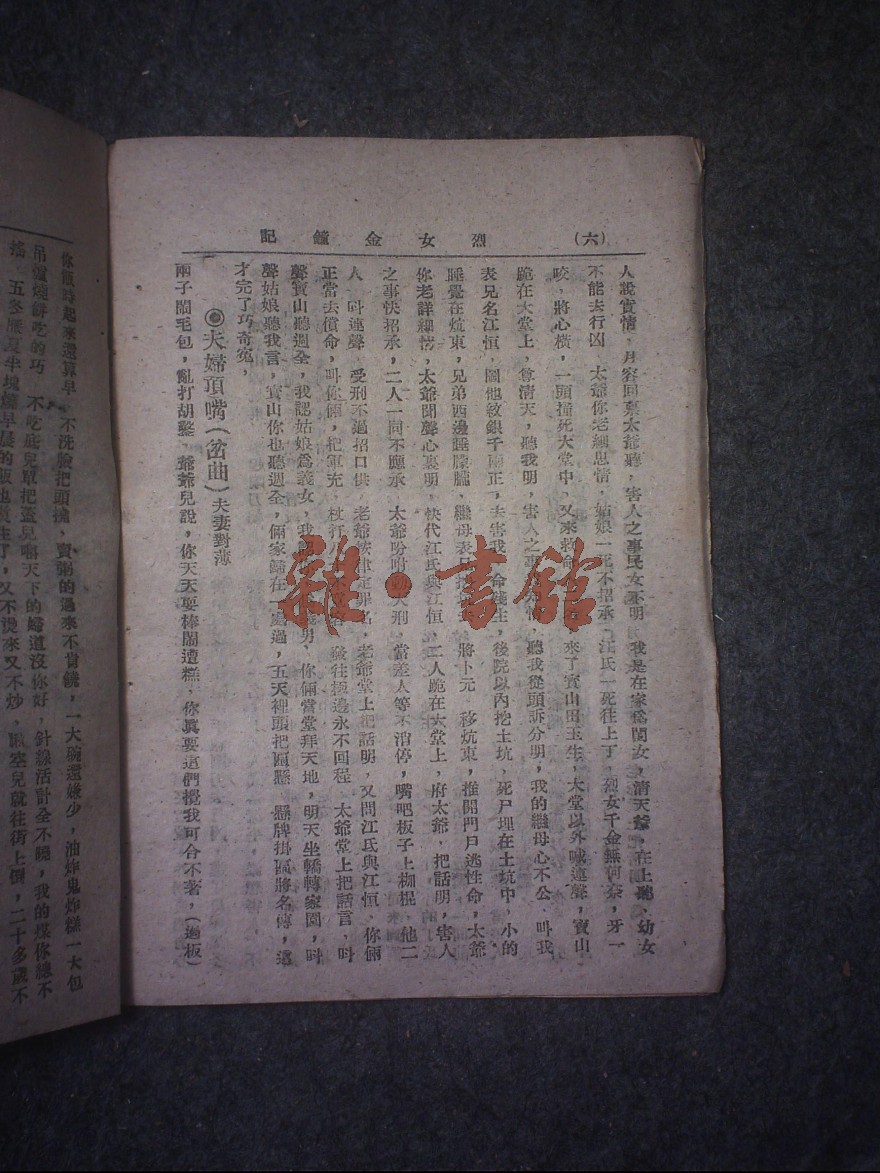 烈女金鐘記 （六）
人說實情，月容回稟太爺聽，害人之事民女不明 我是在家為閨女，清天爺，在上聽、幼女
不能去行凶 太爺你老細思情，姑娘一死不招承 江氏一死往上丁，烈女千金無何奈，牙一
咬，將心橫，一頭撞死大堂中，又來救命 來了寶山田玉生，大堂以外喊連聲，寶山
跪在大堂上，尊清天，聽我明，害人之事 情，聽我從頭訴分明，我的繼母心不公、叫我
表兄名江恒，圖他紋銀千兩正，夫害我 命殘生，後院以內挖土坑，死尸埋在土坑中、小的
睡覺在炕東，兄弟西邊睡朦朧、繼母表兄 將卜元 移炕東，推開門戶逃性命，太爺
你老詳細情，太爺聞聲心裏明，快代江氏與江恒，二人跪在大堂上，府太爺、把話明，害人
之事快招承，二人一同不應承 太爺吩咐動大刑 當差人等不消停，嘴吧板子上枷棍、他二
人、叫連聲、受刑不過招口供 老爺按律定罪名，老爺堂上把話明，又問江氏與江恒、你倆
正當去償命，叫你倆，把軍充、杖打八 發往極邊永不回程 太爺堂上把話言、叫
聲寶山聽週全，我認姑娘為義女，我 義男、你倆當堂拜天地，明天坐轎轉家園，叫
聲姑娘聽我言，寶山你也聽週全，倆家歸在一處過，五天裡頭把匾懸 懸牌掛匾將名傳，這
才完了巧奇冤，
◉夫婦頂嘴（岔曲）夫妻對薄
兩子鬧毛包，亂打胡鑿，爺爺兒說，你天天耍棒鬧遭糕，你真要這們攪我可合不著，（過板）
你飯時起來還算早、不洗臉把頭撓，賣粥的過來不肯饒，一大碗還嫌少，油炸鬼炸糕一大包
吊爐燒餅吃的巧 不吃底兒單把蓋兒嚼天下的婦道沒你好，針線活計全不曉，我的煤你總不
搖、五冬歷夏半塊 早晨的飯也 了，又不燙來又不炒，歐 兒就往街上 ，二十多歲不